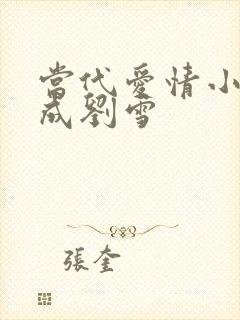 當代愛情小
成劉雪
張奎